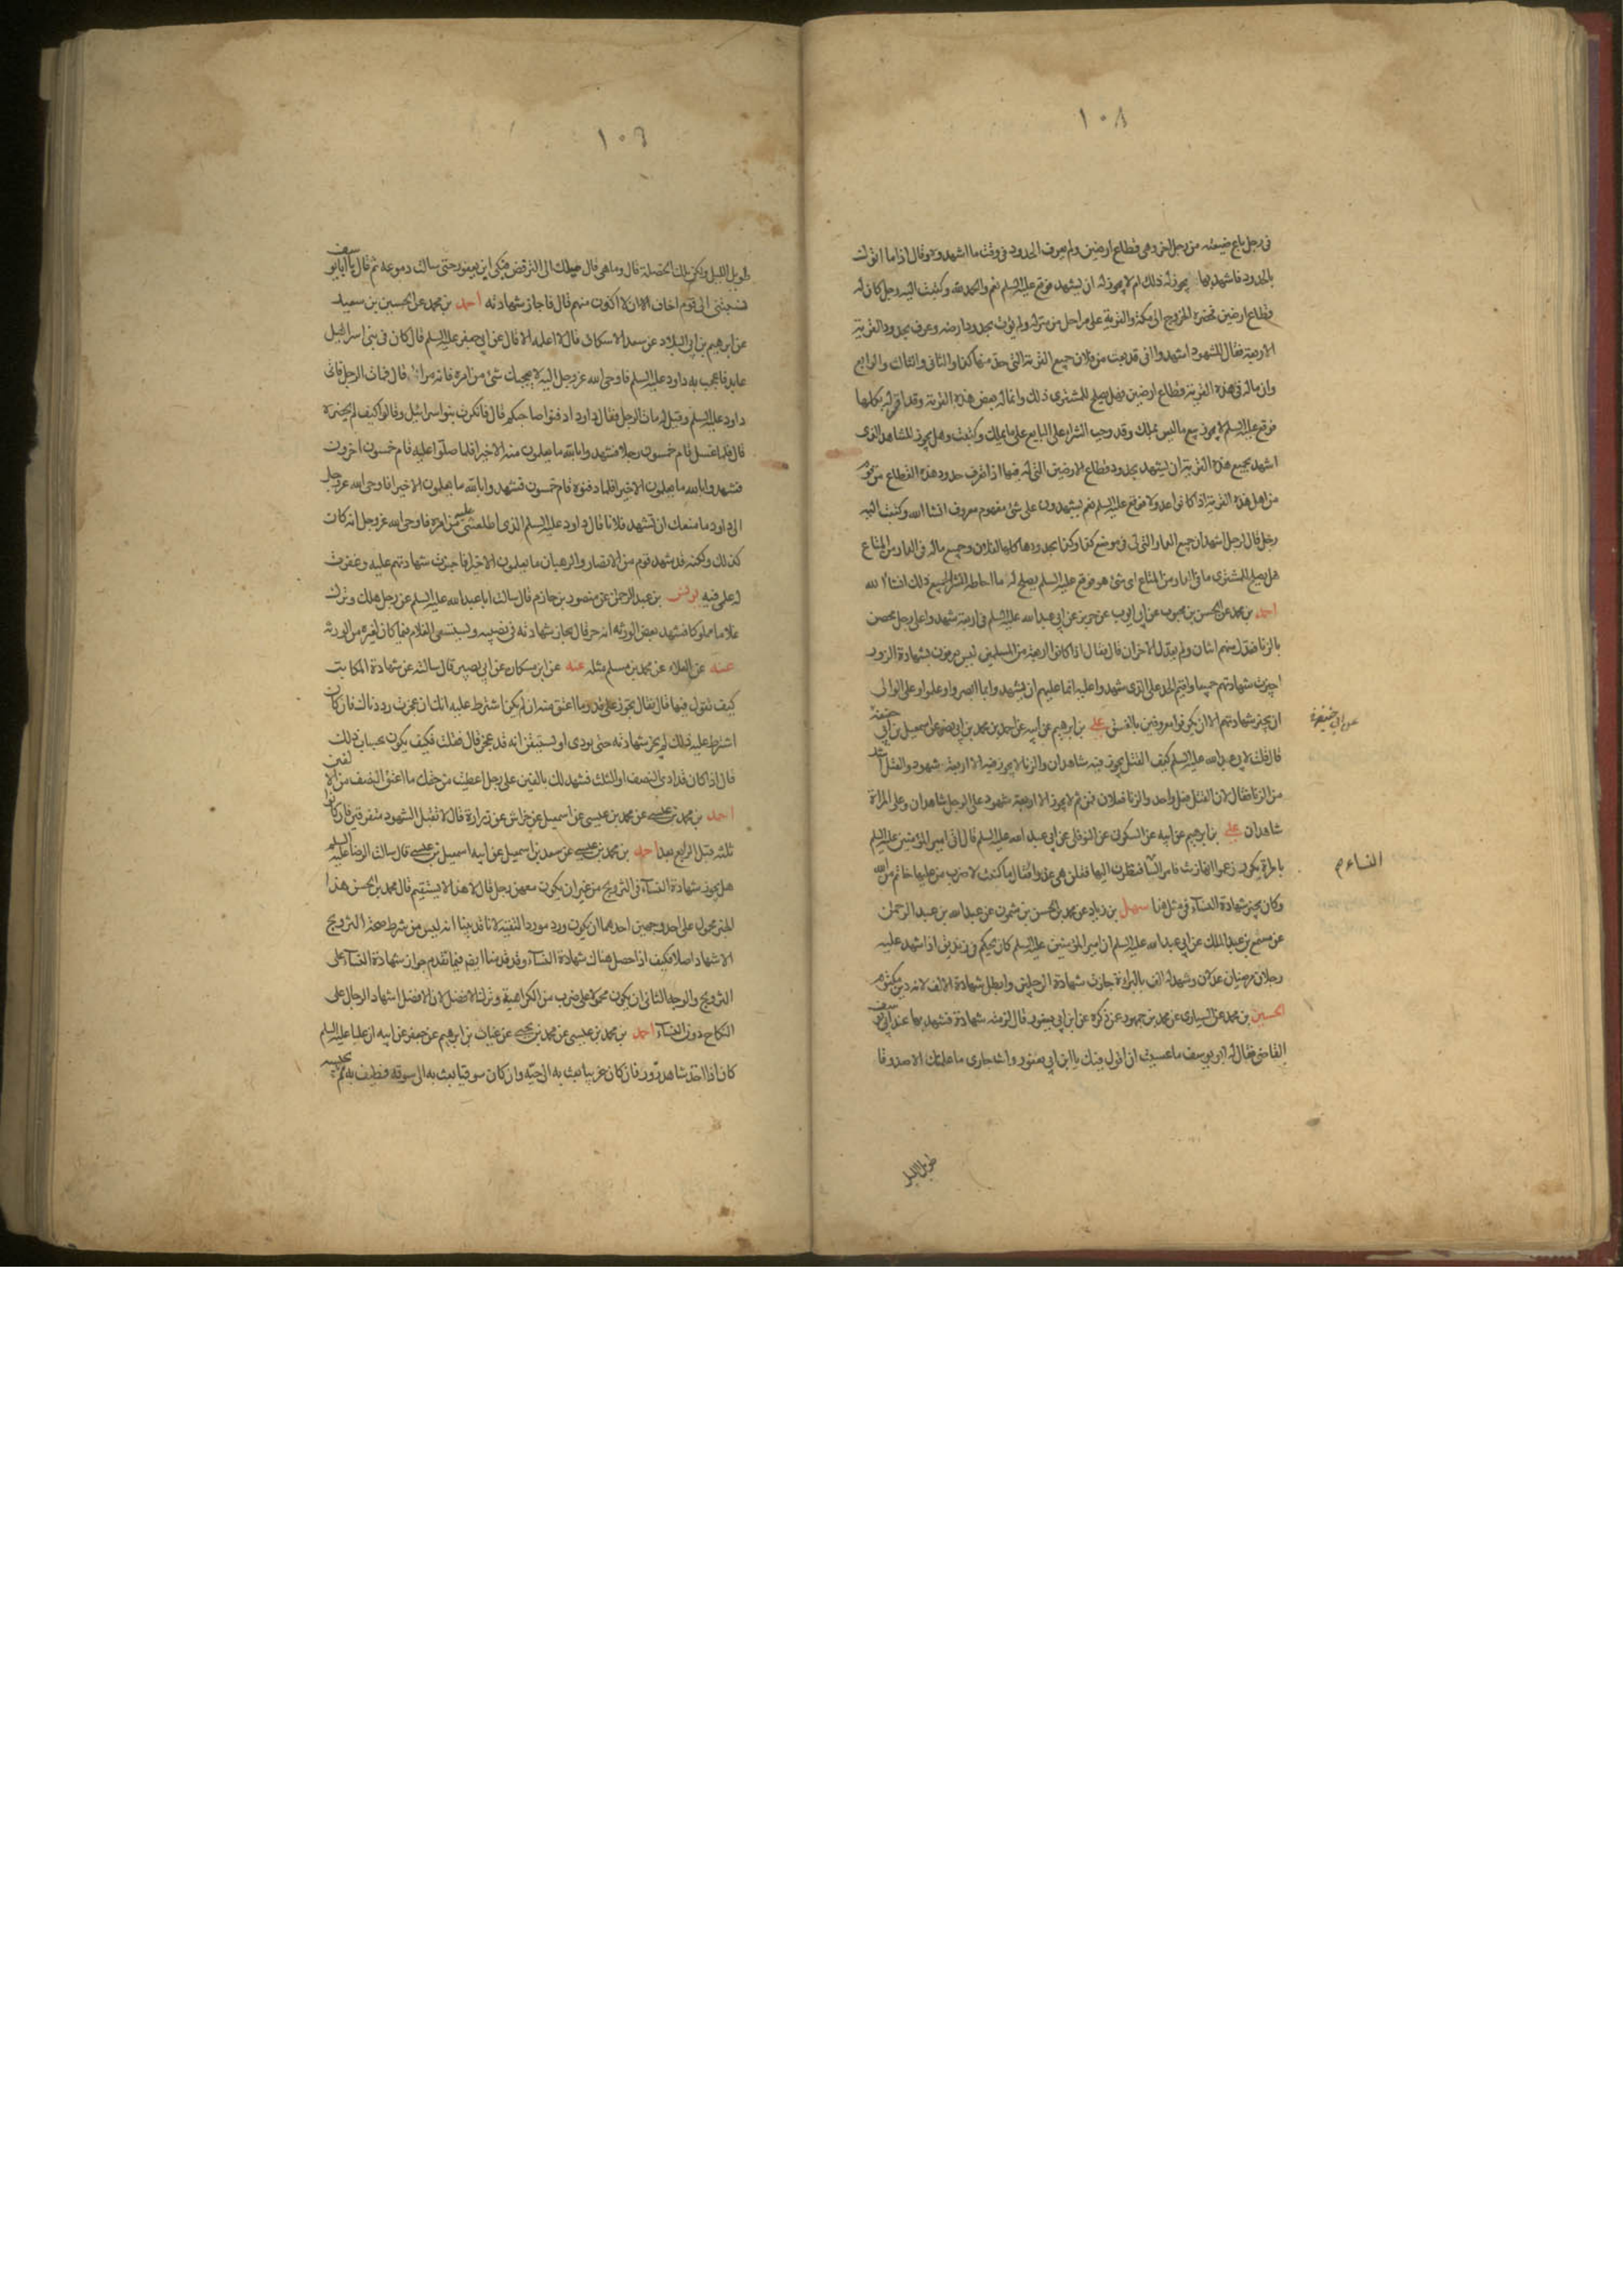 ١٠٨
فى رجل باع ضيعته من رجل اخر وهى قطاع ارضين ولم يعرف الحدود فى وقت ما اشهده وقال اذا ما اتوك
بالحدود فاشهد بها يجوز له ذلك ام لا يجوز له ان يشهد فوقع عليه السلم نعم والحمد لله وكتبت اليه رجل كان له
قطاع ارضين فحضره الخروج الى مكة والقرية على مراحل من منزله ولم يؤت بحدود ارضه وعرف حدود القرية
الاربعة فقال للشهود اشهدوا انى قد بعت من فلان جميع القرية التى حد منها كذا والثانى والثالث والرابع
وانما له فى هذه القرية قطاع ارضين فهل يصلح للمشترى ذلك وانما له بعض هذه القرية وقد اقر له بكلها
فوقع عليه السلم لا يجوز بيع ما ليس يملك وقد وجب الشراء على البايع على ما يملك وكتبت وهل يجوز للشاهد الذى
اشهد بجميع هذه القرية ان يشهد بحدود قطاع الارضين التى له فيها اذا تعرف حدود هذه القطاع من قوم
من اهل هذه القرية اذا كانوا عدولا فوقع عليه السلم نعم يشهدون على شئ مفهوم معروف انشا الله وكتبت اليه
رجل قال لرجل اشهد ان جميع الدار التى لى فى موضع كذا وكذا بحدودها كلها لفلان وجميع ماله فى الدار من المتاع
هل يصلح للمشترى ما فى الدار من المتاع اى شئ هو فوقع عليه السلم يصلح له ما احاط الشراء بجميع ذلك انشاء الله
احمد بن محمد عن الحسن بن محبوب عن ابى ايوب عن حريز عن ابى عبد الله عليه السلم فى اربعة شهدوا على رجل محصن
بالزنا فعدل منهم اثنان ولم يعدل الاخران قال فقال اذا كانوا اربعة من المسلمين ليس يعرفون بشهادة الزور
اجيزت شهادتهم جميعا واقيم الحد على الذى شهدوا عليه انما عليهم ان يشهدوا بما ابصروا وعلموا وعلى الوالى
ان يجيز شهادتهم الا ان يكونوا معروفين بالفسق على بن ابرهيم عن ابيه عن احمد بن محمد بن ابى نصر عن اسمعيل بن ابى حنيفة
قال قلت لابى عبد الله عليه السلم كيف القتل يجوز فيه شاهدان والزنا لا يجوز فيه الا اربعة شهود والقتل اشد
من الزنا فقال لان القتل فعل واحد والزنا فعلان فمن ثم لا يجوز الا اربعة شهود على الرجل شاهدان وعلى المراة
شاهدان على بن ابرهيم عن ابيه عن السكونى عن النوفلى عن ابى عبد الله عليه السلم قال اتى امير المؤمنين عليه السلم
بامراة بكر زعموا انها زنت فامر النسا فنظرن اليها فقلن هى عذراء فقال ما كنت لاضرب من عليها خاتم من الله
وكان يجيز شهادة النساء فى مثل هذا سهل بن زياد عن محمد بن الحسن بن شمون عن عبد الله بن عبد الرحمن
عن مسمع بن عبد الملك عن ابى عبد الله عليه السلم ان امير المؤمنين عليه السلم كان يحكم فى زنديق اذا شهد عليه
رجلان مرضيان عدلان وشهد له الف بالبراءة جازت شهادة الرجلين وابطل شهادة الالف لانه دين مكتوم
الحسين بن محمد عن السيارى عن محمد بن جمهور عن ذكره عن ابن ابى يعفور قال لزمته شهادة فشهد بها عند ابى يوسف
القاضى فقال له ابو يوسف ما عسيت ان اقول فيك يا ابن ابى يعفور وانت جارى ما علمتك الا صدوقا
عن ابى حنيفة
النساء م
طويل الليل
١٠٩
طويل الليل ولكن تلك الخصلة قال وما هى قال ميلك الى الترفض فبكى ابن ابى يعفور حتى سالت دموعه ثم قال يا ابا يوسف
نسبتنى الى قوم اخاف الا اكون منهم قال فاجاز شهادته احمد بن محمد عن الحسين بن سعيد
عن ابرهيم بن ابى البلاد عن سعد الاسكاف قال لا اعلمه الا قال عن ابى جعفر عليه السلم قال كان فى بنى اسرائيل
عابد فاعجب به داود عليه السلم فاوحى الله عز وجل اليه لا يعجبك شئ من امره فانه مراء قال فمات الرجل فاتى
داود عليه السلم وقيل له مات الرجل فقال داود ادفنوا صاحبكم قال فانكرت بنو اسرائيل وقالوا كيف لم يحضره
قال فلما غسل قام خمسون رجلا فشهدوا بالله ما يعلمون منه الا خيرا فلما صلوا عليه قام خمسون اخرون
فشهدوا بالله ما يعلمون الا خيرا فلما دفنوه قام خمسون فشهدوا بالله ما يعلمون الا خيرا فاوحى الله عز وجل
الى داود ما منعك ان تشهد فلانا قال داود عليه السلم الذى اطلعتنى عليه من امره فاوحى الله عز وجل انه كان
كذلك ولكنه قد شهد قوم من الاحبار والرهبان ما يعلمون الا خيرا فاجزت شهادتهم عليه وغفرت
له علمى فيه يونس بن عبد الرحمن عن منصور بن حازم قال سالت ابا عبد الله عليه السلم عن رجل هلك وترك
غلاما مملوكا فشهد بعض الورثة انه حر قال تجاز شهادته فى نصيبه ويستسعى الغلام فيما كان لغيره من الورثة
عنه عن العلاء عن محمد بن مسلم مثله عنه عن ابن مسكان عن ابى بصير قال سالته عن شهادة المكاتب
كيف تقول فيها قال فقال تجوز على قدر ما اعتق منه ان لم يكن اشترط عليه انك ان عجزت رددناك فان كان
اشترط عليه ذلك لم تجز شهادته حتى يودى او يستيقن انه قد عجز قال فقلت فكيف يكون بحساب ذلك
قال اذا كان قد ادى النصف او الثلث فشهد لك بالفين على رجل اعطيت من حقك ما اعتق النصف من الالفين
احمد بن محمد بن عيسى عن محمد بن عيسى عن اسمعيل بن خراش عن زرارة قال لا تقبل الشهود متفرقين فان كانوا
ثلثة قبل الرابع بعد احمد بن محمد بن عيسى عن سعد بن اسمعيل عن ابيه اسمعيل بن عيسى قال سالت الرضا عليه السلم
هل يجوز شهادة النساء فى التزويج من غير ان يكون معهن رجل قال لا هذا لا يستقيم قال محمد بن الحسن هذا
الخبر محمول على احد وجهين احدهما ان يكون ورد مورد التقية لانا قد بينا انه ليس من شرط صحة التزويج
الاشهاد اصلا فكيف اذا حصل هناك شهادة النساء وقد قدمنا ايضا فيما تقدم جواز شهادة النساء على
التزويج والوجه الثانى ان يكون محمولا على ضرب من الكراهية وترك الافضل لان الافضل اشهاد الرجال على
النكاح دون النساء احمد بن محمد بن عيسى عن محمد بن يحيى عن غياث بن ابرهيم عن جعفر عن ابيه ان عليا عليه السلم
كان اذا اخذ شاهد زور فان كان غريبا بعث به الى حيه وان كان سوقيا بعث به الى سوقه فطيف به ثم يحبسه